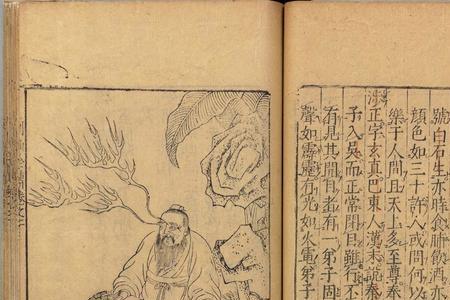 號白石生亦時食脯飲酒亦
顏色如三十許人或問何以
樂于人間且天上多至尊奉
涉正字玄真巴東人漢末說秦
子入吳而正常閉目雖行不
有見其開目者有一弟子固
聲如霹靂有光如火電弟子